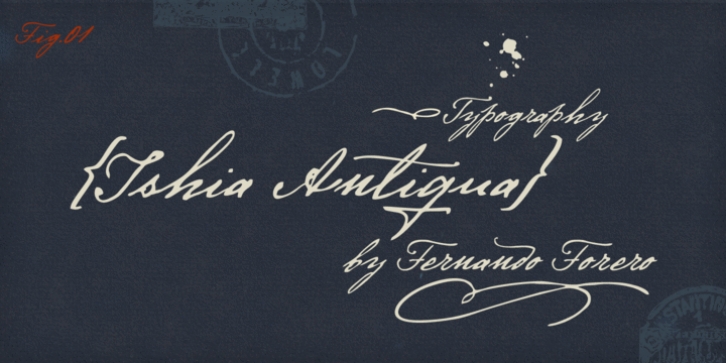 Fig.01
Typography
{Ishia Antiqua}
by Fernando Forero